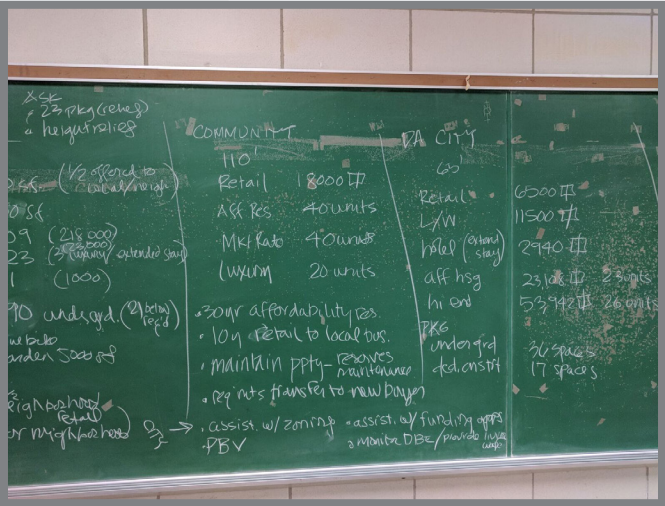 ASK
23 pkg (relief)
height relief
sf (1/2 offered to
local/neigh)
0 sf
09 (218,000)
23 (luxury/extended stay)
(1000)
90 undrgrd. (21 being
req'd)
5000 sf
neighborhood
retail
or neighborhood
COMMUNITY
110'
Retail 18000
Aff Res 40 units
Mkt Rate 40 units
luxury 20 units
• 30 yr affordability res.
• 10 yr retail to local bus.
• maintain ppty - reserves
maintenance
• rqmts transfer to new buyer
→ • assist. w/ zoning • assist. w/ funding apps
• PBV • monitor DBE/provide
DA CITY
65'
Retail 6500
L/W 11500
hotel (extend
stay) 2940
aff hsg 23,108 23 units
hi end 53,942 26 units
PKG
undergrd 36 spaces
ded. onstrt 17 spaces